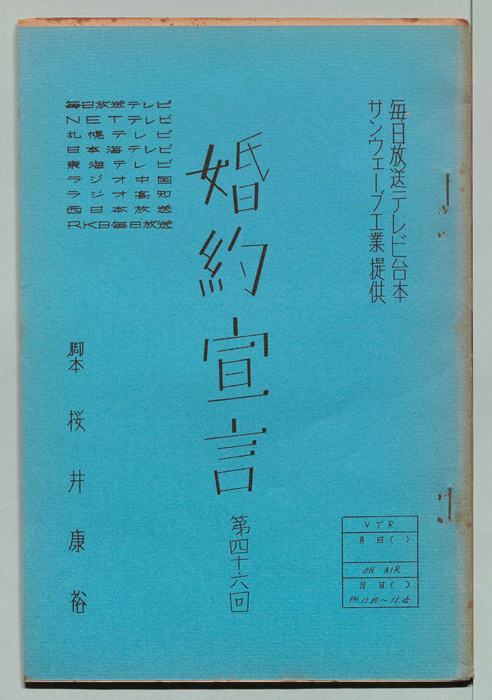 毎日放送テレビ台本
サンウェーブ工業 提供
婚約宣言
第四十六回
毎日放送テレビ
NETテレビ
札幌テレビ
日本海テレビ
東海テレビ
ラジオ中国
ラジオ高知
西日本放送
RKB毎日放送
脚本 桜井康裕
VTR
月 日( )
ON AIR
月 日( )